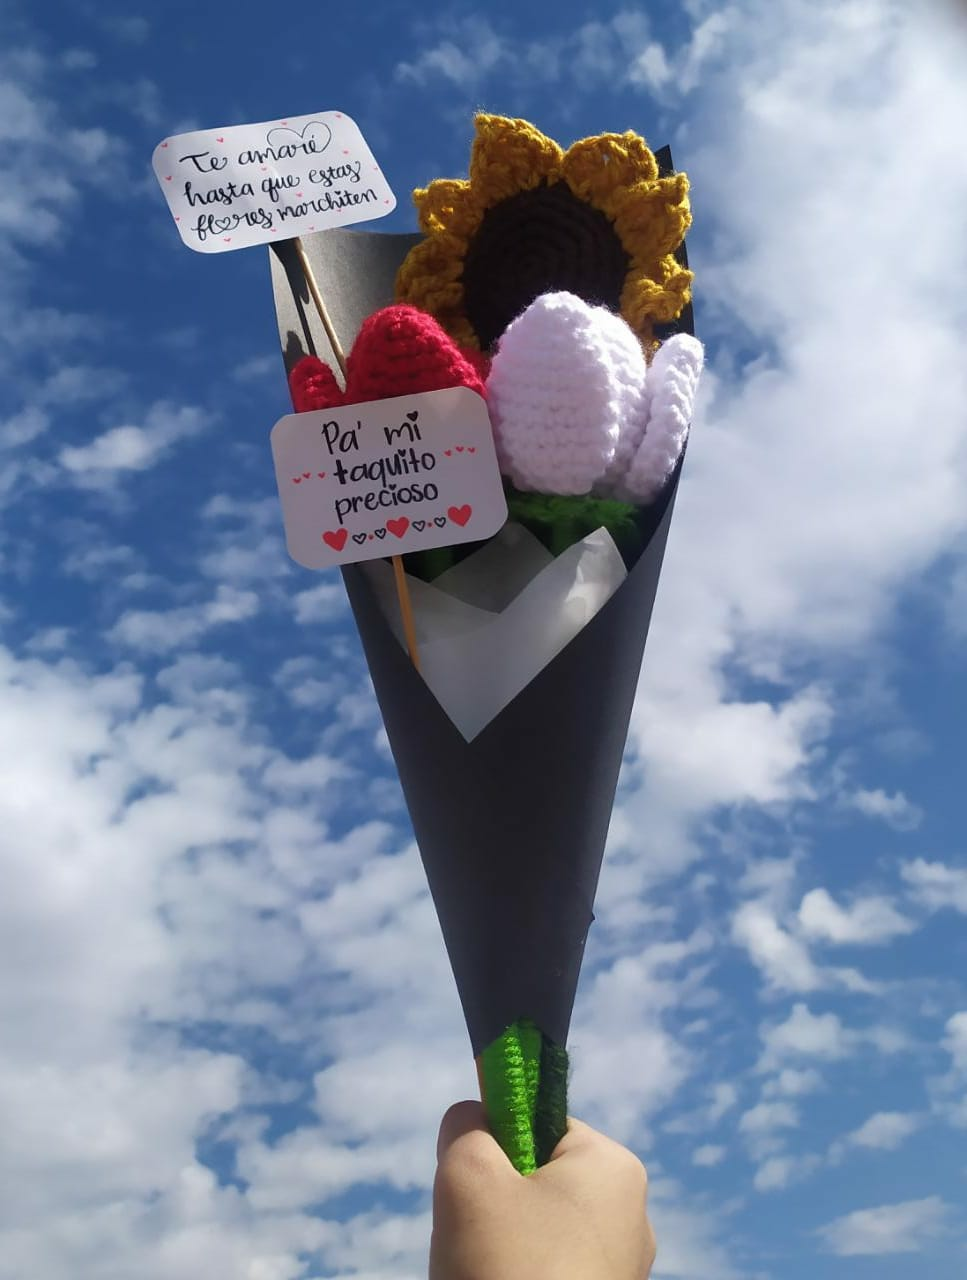 Te amaré
hasta que estas
flores marchiten
Pa' mi
taquito
precioso